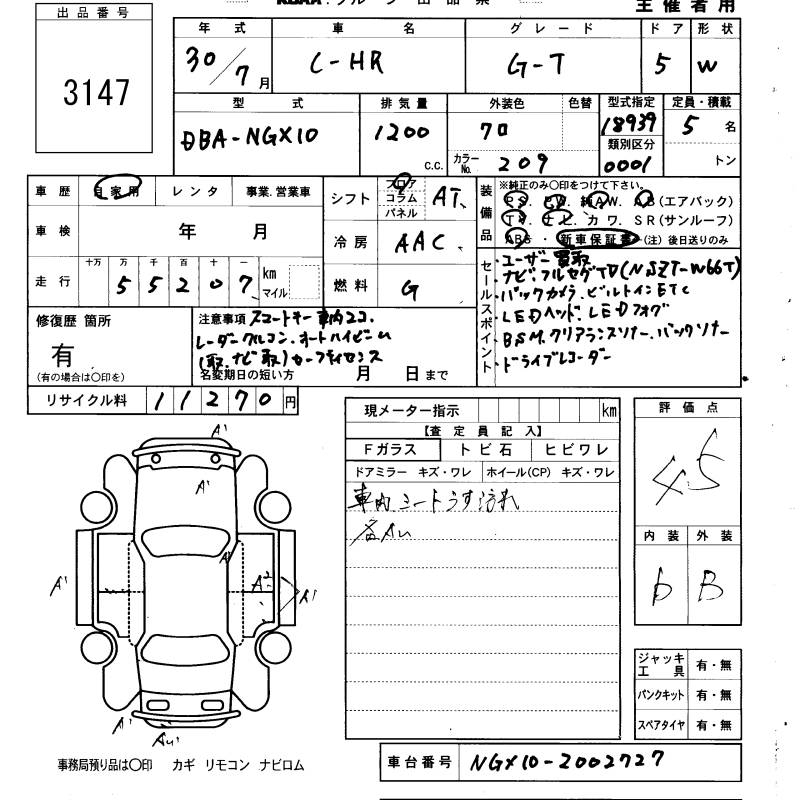 主催者用
出品番号
3147
年式 車名 グレード ドア 形状
30/7月 C-HR G-T 5 W
型式 排気量 外装色 色替 型式指定 定員・積載
DBA-NGX10 1200 c.c. クロ 18939 5 名
類別区分
カラーNo. 209 0001 トン
車歴 自家用 レンタ 事業.営業車
シフト フロア コラム パネル AT
装備品 ※純正のみ○印をつけて下さい。
PS. PW. 純AW. AB(エアバック)
TV. ナビ. カワ. SR(サンルーフ)
ABS・新車保証書(注)後日送りのみ
車検 年 月
冷房 AAC
走行 十万 万 千 百 十 一
55207 km マイル
燃料 G
セールスポイント
・ユーザー買取
・ナビ・フルセグTV(NSZT-W66T)
・バックカメラ、ビルトインETC
・LEDヘッド、LEDフォグ
・BSM、クリアランスソナー、バックソナー
・ドライブレコーダー
修復歴 箇所
有
(有の場合は○印を)
注意事項 スマートキー車内2コ、
レーダークルコン、オートハイビーム
(取、ナビ取)セーフティセンス
名変期日の短い方 月 日まで
リサイクル料 11270円
現メーター指示 km
【査定員記入】
Fガラス トビ石 ヒビワレ
ドアミラー キズ・ワレ ホイール(CP) キズ・ワレ
車内シートうす汚れ
各AU
評価点
4.5
内装 外装
b B
A'
A'
A'
A'
A²
A'
A'
AU'
ジャッキ工具 有・無
パンクキット 有・無
スペアタイヤ 有・無
事務局預り品は○印 カギ リモコン ナビロム
車台番号 NGX10-2002727